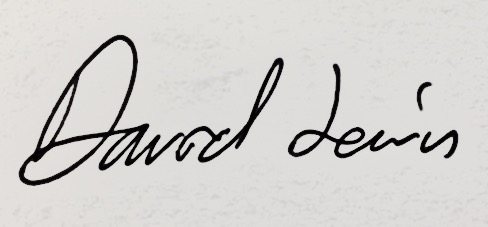 David Lewis